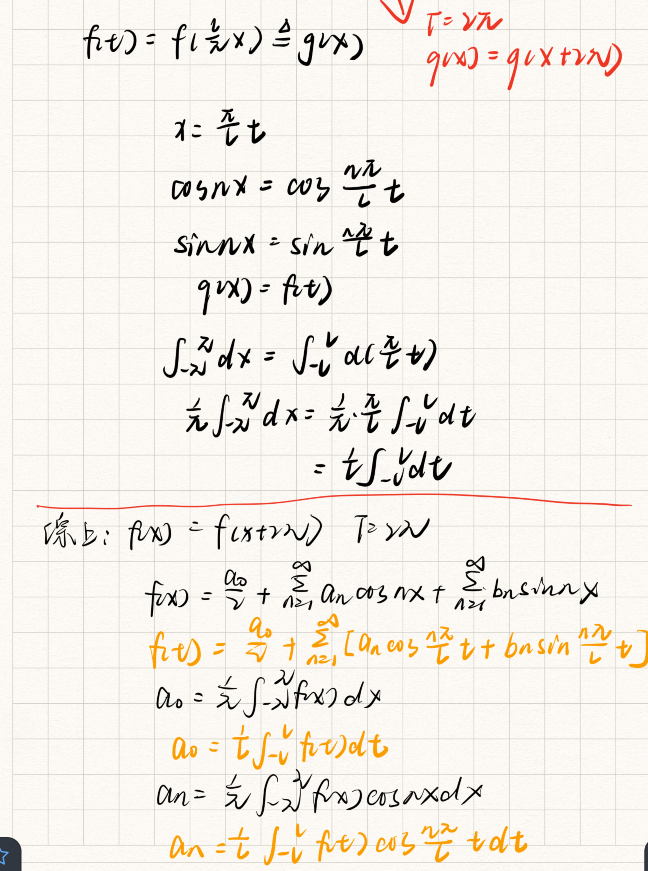 f(t) = f(\frac{L}{π}x) ≜ g(x)
T=2π
g(x) = g(x+2π)
x = \frac{π}{L} t
cosnx = cos \frac{nπ}{L} t
sinnx = sin \frac{nπ}{L} t
g(x) = f(t)
∫_{-π}^{π} dx = ∫_{-L}^{L} d(\frac{π}{L} t)
\frac{1}{π} ∫_{-π}^{π} dx = \frac{1}{π} · \frac{π}{L} ∫_{-L}^{L} dt
= \frac{1}{L} ∫_{-L}^{L} dt
综上: f(x) = f(x+2π) T=2π
f(x) = \frac{a_0}{2} + ∑_{n=1}^{∞} a_n cosnx + ∑_{n=1}^{∞} b_n sinnx
f(t) = \frac{a_0}{2} + ∑_{n=1}^{∞} [a_n cos \frac{nπ}{L} t + b_n sin \frac{nπ}{L} t]
a_0 = \frac{1}{π} ∫_{-π}^{π} f(x) dx
a_0 = \frac{1}{L} ∫_{-L}^{L} f(t) dt
a_n = \frac{1}{π} ∫_{-π}^{π} f(x) cosnx dx
a_n = \frac{1}{L} ∫_{-L}^{L} f(t) cos \frac{nπ}{L} t dt